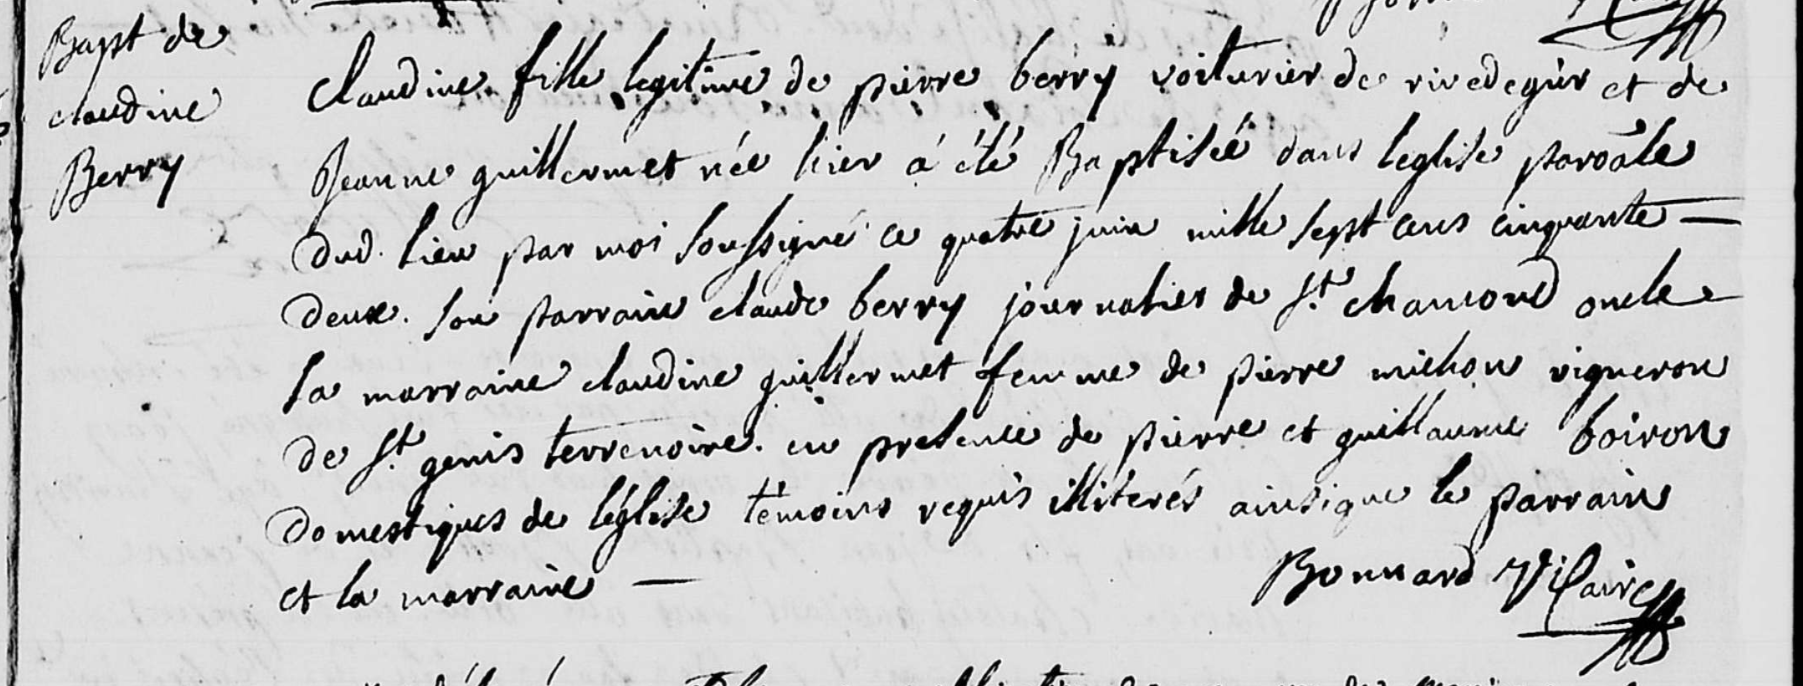 Bapt de
claudine
Berry
claudine fille legitime de pierre berry voiturier de rivedegier et de
Jeanne guillermet née hier á été Baptisée dans leglise paroâle
dud. lieu par moi soussigné ce quatre juin mille sept cens cinquante —
deux. son parrain claude berry journalier de St. chamond oncle
sa marraine claudine guillermet femme de pierre michon vigneron
de St. genis terrenoire. en presence de pierre et guillaume boiron
domestiques de l'église témoins requis illiterés ainsique le parrain
et la marraine —
Bonnard Vicaire